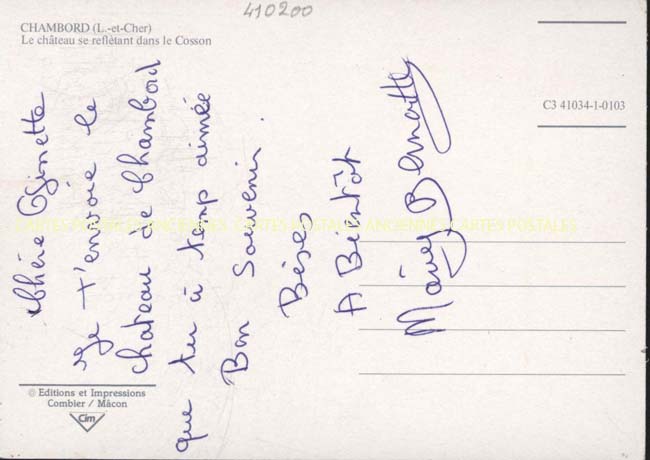 410200
CHAMBORD (L.-et-Cher)
Le château se reflètant dans le Cosson
C3 41034-1-0103
Chère Ginette
Je t'envoie le
chateau de Chambord
que tu à temp aimée
Bon Souvenir.
Bises
A Bientôt
CARTES POSTALES ANCIENNES CARTES POSTALES ANCIENNES CARTES POSTALES
© Editions et Impressions
Combier / Mâcon
Cim